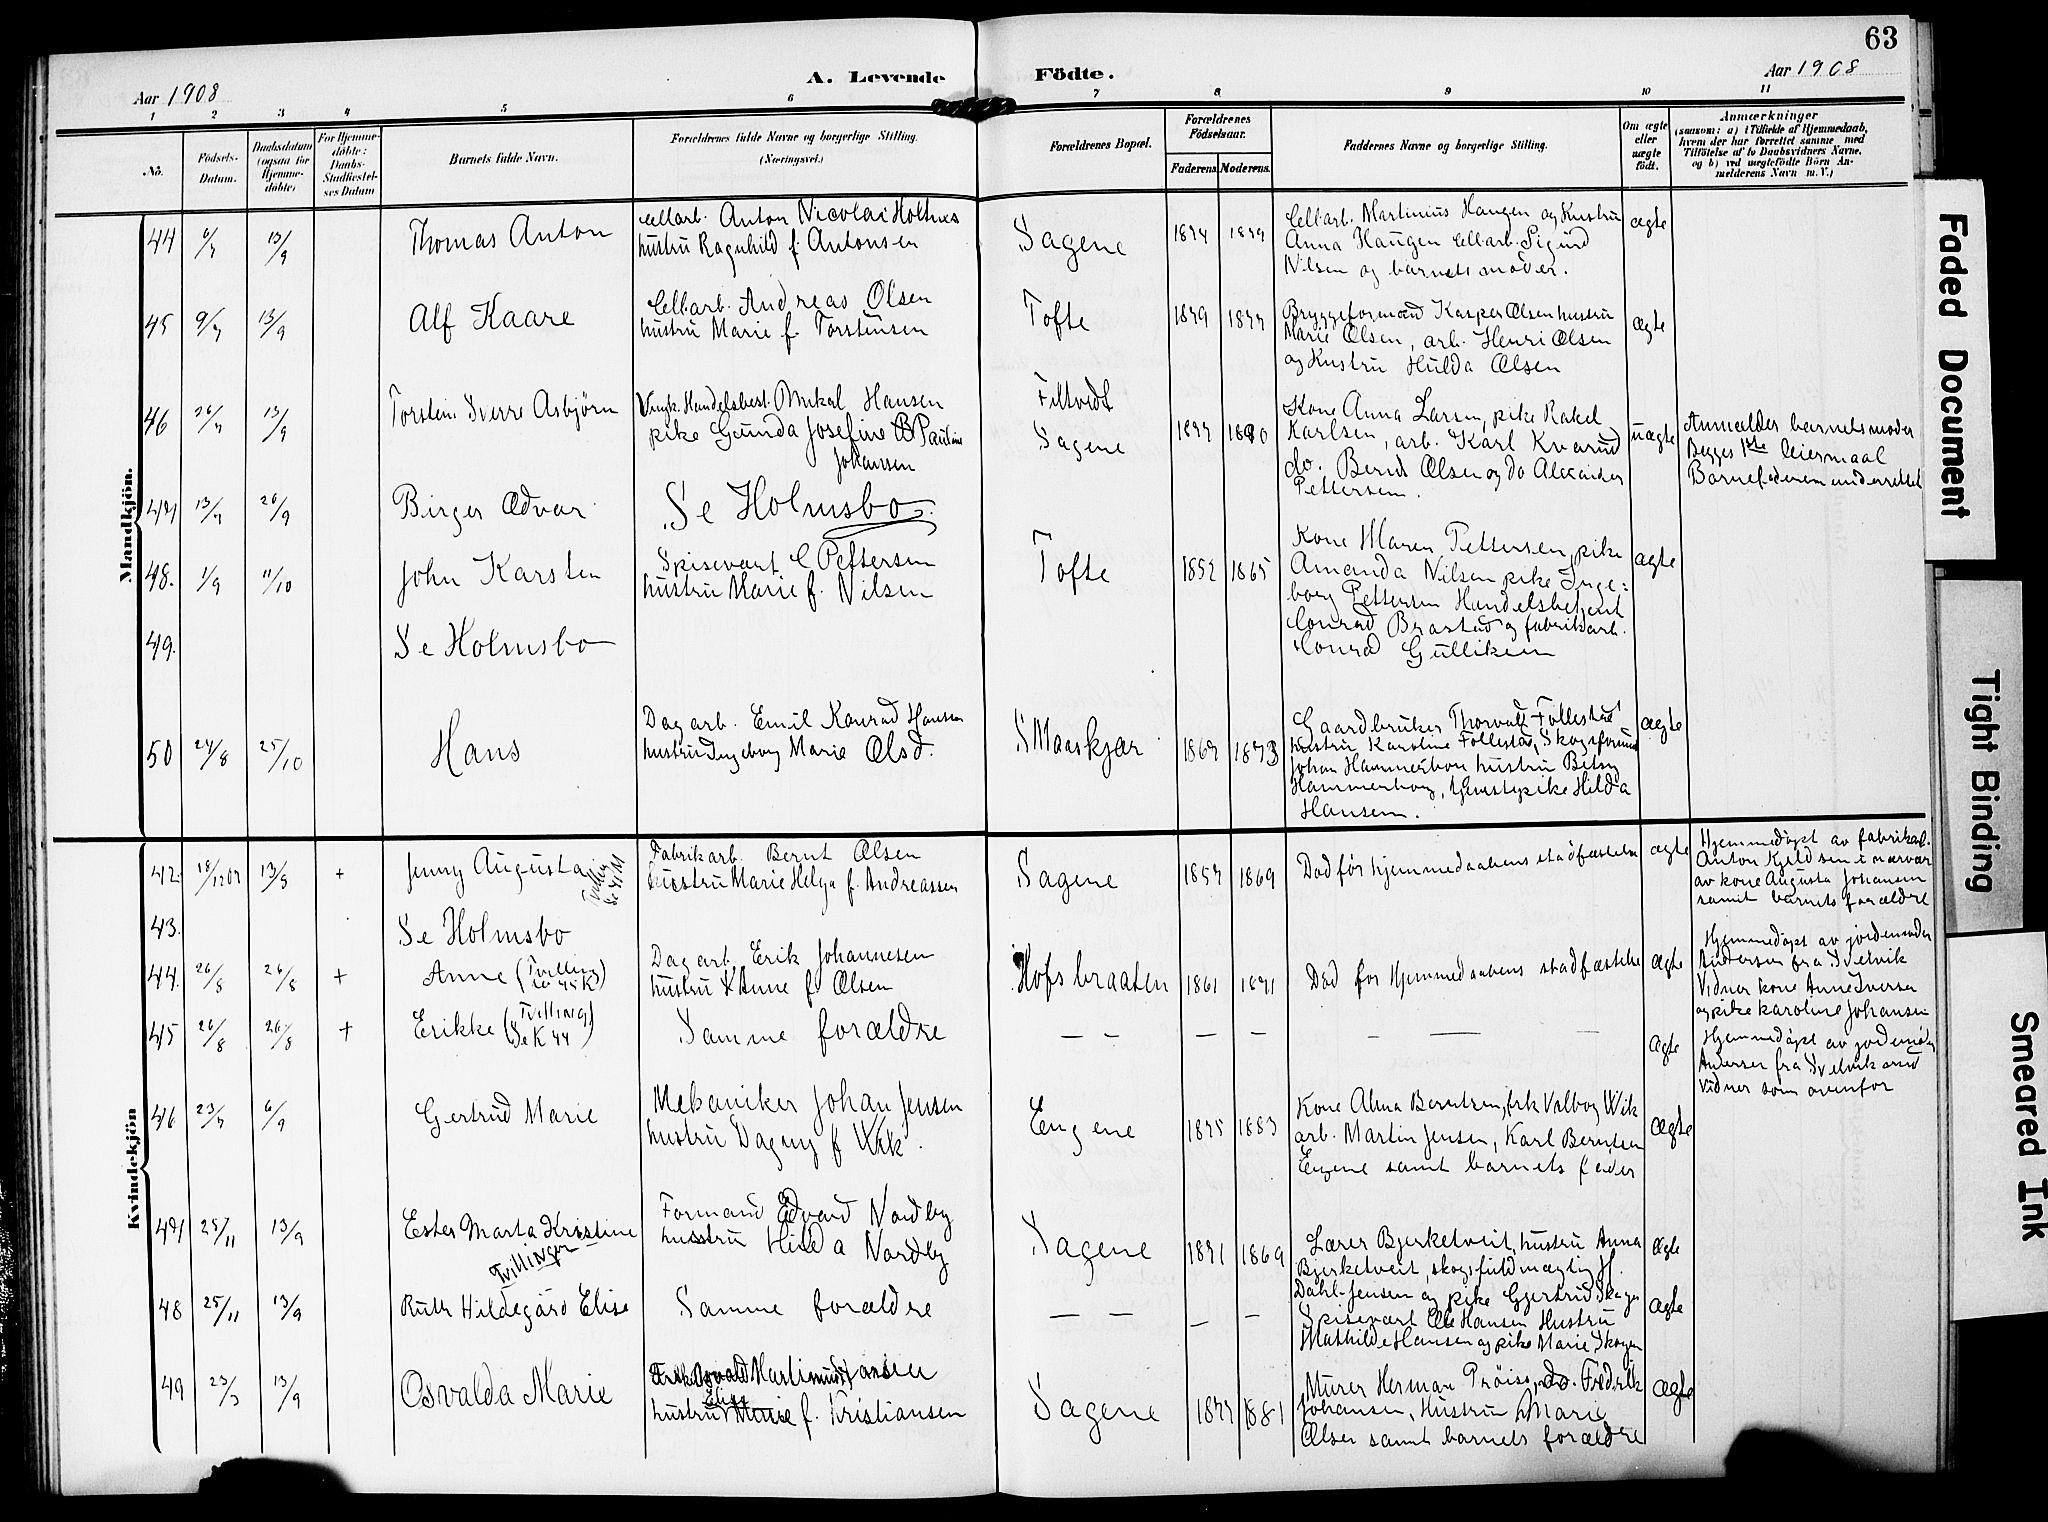 63
Aar 1908
A. Levende Födte.
Aar 1908
1 2 3 4 5 6 7 8 9 10 11
No.
Födsels-
Datum.
Daabsdatum
(ogsaa for
Hjemme-
döbte)
For Hjemme-
döbte:
Daabs-
Stadfæstel-
ses Datum
Barnets fulde Navn.
Forældrenes fulde Navne og borgerlige Stilling.
(Næringsvei.)
Forældrenes Bopæl.
Forældrenes
Födselsaar.
Faderens. Moderens.
Faddernes Navne og borgerlige Stilling.
Om ægte
eller
uægte
födt.
Anmærkninger
(saasom: a) i Tilfælde af Hjemmedaab,
hvem der har forrettet samme med
Tilföielse af to Daabsvidners Navne,
og b) ved uægtefödte Börn An-
melderens Navn m. V.)
Mandkjön.
44 6/7 13/9 Thomas Anton
Cellarb. Anton Nicolai Holtnes
hustru Ragnhild f. Antonsen
Sagene 1874 1879
Cellarb. Martinius Haugen og Hustru
Anna Haugen Cellarb. Sigurd
Nilsen og barnets moder.
ægte
45 9/7 13/9 Alf Kaare
Cellarb. Andreas Olsen
hustru Marie f. Torstensen
Tofte 1879 1877
Bryggeformand Kasper Olsen hustru
Marie Olsen, arb. Henri Olsen
og Hustru Hulda Olsen
ægte
46 26/7 13/9 Torstein Sverre Asbjörn
Ungk. Handelsbest. Mikal Hansen
pike Gunda Josefine Pauline
Johansen
Filtvedt
Sagene 1877 1880
Kone Anna Larsen, pike Rakel
Karlsen, arb. Karl Kvarud
do. Bernt Olsen og do Alexander
Pettersen.
uægte
Anmelder barnets moder
Begges 1ste Leiermaal
Barnefaderen underrettet
47 13/7 20/9 Birger Edvar
Se Holmsbo.
48. 1/9 11/10 John Karsten
Spisevært C Pettersen
hustru Marie f. Nilsen
Tofte 1852 1865
Kone Maren Pettersen, pike
Amanda Nilsen pike Inge:
borg Pettersen Handelsbetjent
Conrad Brastad og fabrikarb.
Konrad Gulliksen
ægte
49. Se Holmsbo
50 24/8 25/10 Hans
Dagarb. Emil Konrad Hansen
hustru Ingeborg Marie Olsd.
SMaaskjær 1867 1873
Gaardbruker Thorvald Follestad
hustru Karoline Follestad, Skogsformand
Johan Hammerborg hustru Betsy
Hammerborg, tjenestepike Hilda
Hansen.
ægte
Kvindekjön
42. 18/12 07 13/8 + Jenny Augusta Tvilling Se 41 M
Fabrikarb. Bernt Olsen
hustru Marie Helga f. Andreassen
Sagene 1857 1869
Död för hjemmedaabens stadfæstelse
ægte
Hjemmedöpt av fabrikarb.
Anton Kjeldsen i nærvær
av kone Augusta Johansen
samt barnets forældre
43. Se Holmsbo
44. 26/8 26/8 + Anne (Tvilling se 45 K)
Dagarb. Erik Johannesen
hustru Anne f Olsen
Hofsbraaten 1861 1871
Död för Hjemmedaabens stadfæstelse
ægte
Hjemmedöpt av jordemoder
Andersen fra Svelvik
Vidner kone Anne Iversen
og pike Karoline Johansen
45 26/8 26/8 + Erikke (Tvilling Se K 44)
Samme forældre
— — — — — — —
ægte
Hjemmedöpt av jordemoder
Andersen fra Svelvik med
vidner som ovenfor
46 23/7 6/9 Gertrud Marie
Mekaniker Johan Jensen
hustru Dagny f Wik.
Engene 1875 1883
Kone Alma Berntsen, frk Valborg Wik
arb. Martin Jensen, Karl Berntsen
Engene samt barnets fader
ægte
47 25/11 13/9 Ester Marta Kristine
Tvillinger
Formand Edvard Nordby
hustru Hilda Nordby
Sagene 1871 1869
Lærer Bjerketveit, hustru Anna
Bjerketveit, skogsfuldmægtig Hj.
Dahl-Jensen og pike Gjertrud Skogen
ægte
48 25/11 13/9 Ruth Hildegard Elise
Samme forældre
— — — —
Spisevært Ole Hansen Hustru
Mathilde Hansen og pike Marie Skogen
ægte
49 23/3 13/9 Osvalda Marie
Osvald Martinius
hustru Elise f. Kristiansen
Sagene 1877 1881
Murer Herman Pröis, do. Fredrik
Johansen, Hustru Marie
Olsen samt barnets forældre
ægte
Faded Document
Tight Binding
Smeared Ink